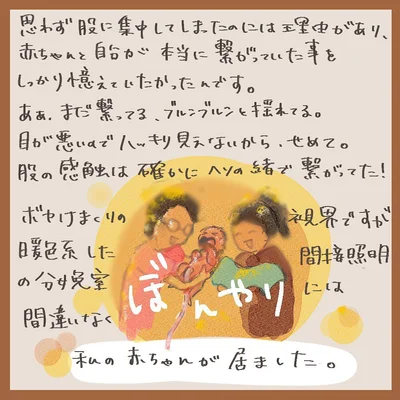 思わず股に集中してしまったのには理由があり、
赤ちゃんと自分が本当に繋がっていた事を
しっかり憶えていたかったんです。
ああ、まだ繋ってる、ブルンブルンと揺れてる。
目が悪いのでハッキリ見えないから、せめて。
股の感触は確かにヘソの緒で繋がってた!
ボヤけまくりの視界ですが
暖色系した間接照明
の分娩室には
ぼんやり
間違いなく
私の赤ちゃんが居ました。